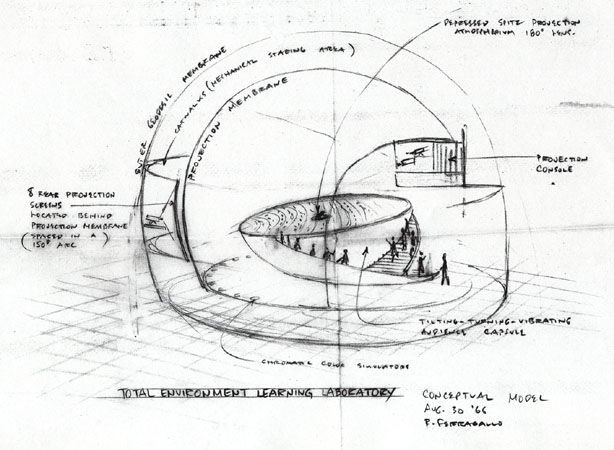 DEPRESSED SPITZ PROJECTION
ATMOSPHERIUM 180° LENS.
OUTER GEODESIC MEMBRANE
CATWALKS (MECHANICAL STAGING AREA)
PROJECTION MEMBRANE
PROJECTION
CONSOLE
8 REAR PROJECTION
SCREENS
LOCATED BEHIND
PROJECTION MEMBRANE
(SPACED IN A
150° ARC)
TILTING-TURNING-VIBRATING
AUDIENCE CAPSULE
CHROMATIC COLOR SIMULATORS
TOTAL ENVIRONMENT LEARNING LABORATORY
CONCEPTUAL MODEL
AUG. 30 '66
R. FERRAGALLO